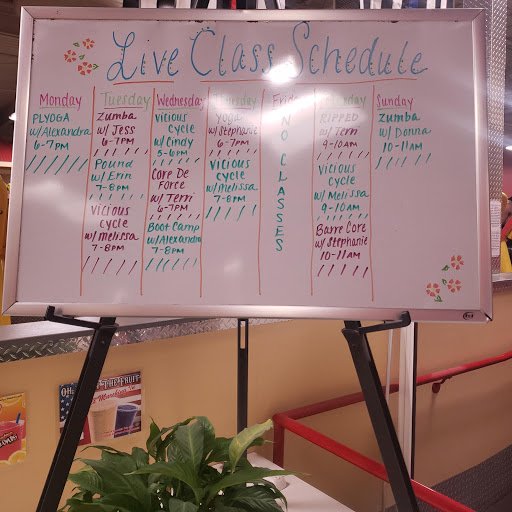 Live Class Schedule
Monday
PLYOGA
w/Alexandra
6-7pm
Tuesday
Zumba
w/ Jess
6-7pm
Pound
w/ Erin
7-8pm
Vicious
cycle
w/ melissa
7-8pm
Wednesday
Vicious
Cycle
w/ Cindy
5-6pm
Core De
Force
w/ Terri
6-7pm
Boot Camp
w/Alexandra
7-8pm
Thursday
Yoga
w/ Stephanie
6-7pm
Vicious
cycle
w/ Melissa
7-8pm
Friday
NO CLASSES
Saturday
RIPPED
w/ Terri
9-10am
Vicious
cycle
w/ Melissa
9-10am
Barre Core
w/ Stephanie
10-11am
Sunday
Zumba
w/ Donna
10-11am
THE FRUIT